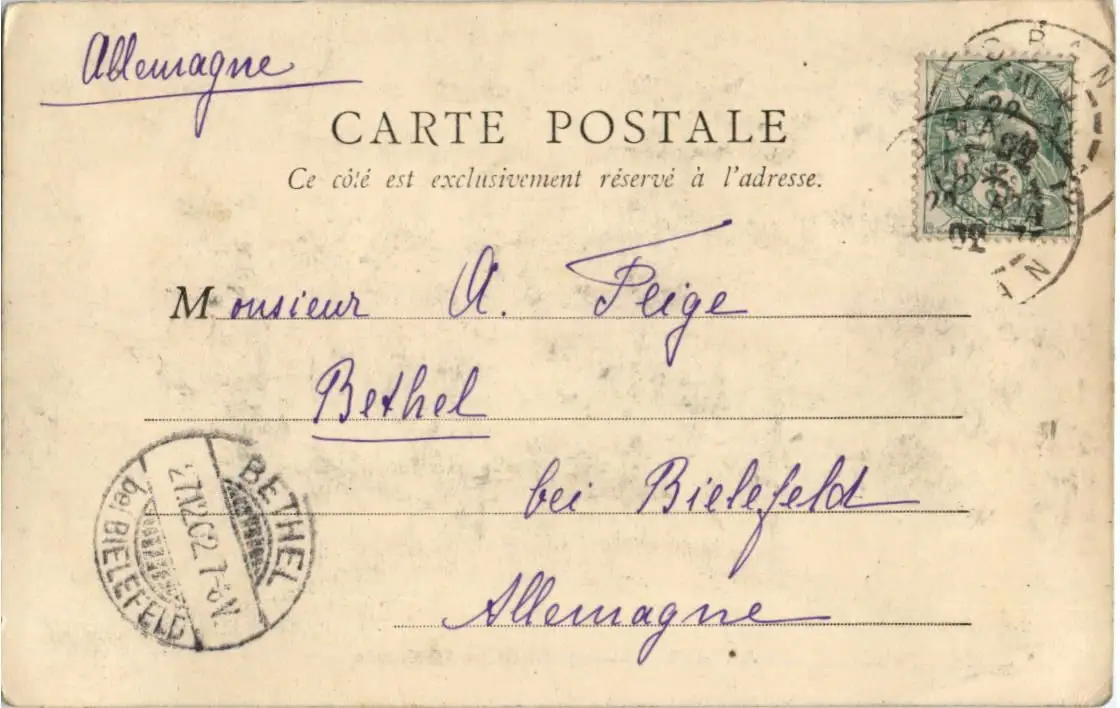 Allemagne
CARTE POSTALE
Ce côté est exclusivement réservé à l'adresse.
Monsieur A. Peige
Bethel
bei Bielefeld
Allemagne
BETHEL
27.12.02. 7-8V.
bei BIELEFELD
ORAN
02